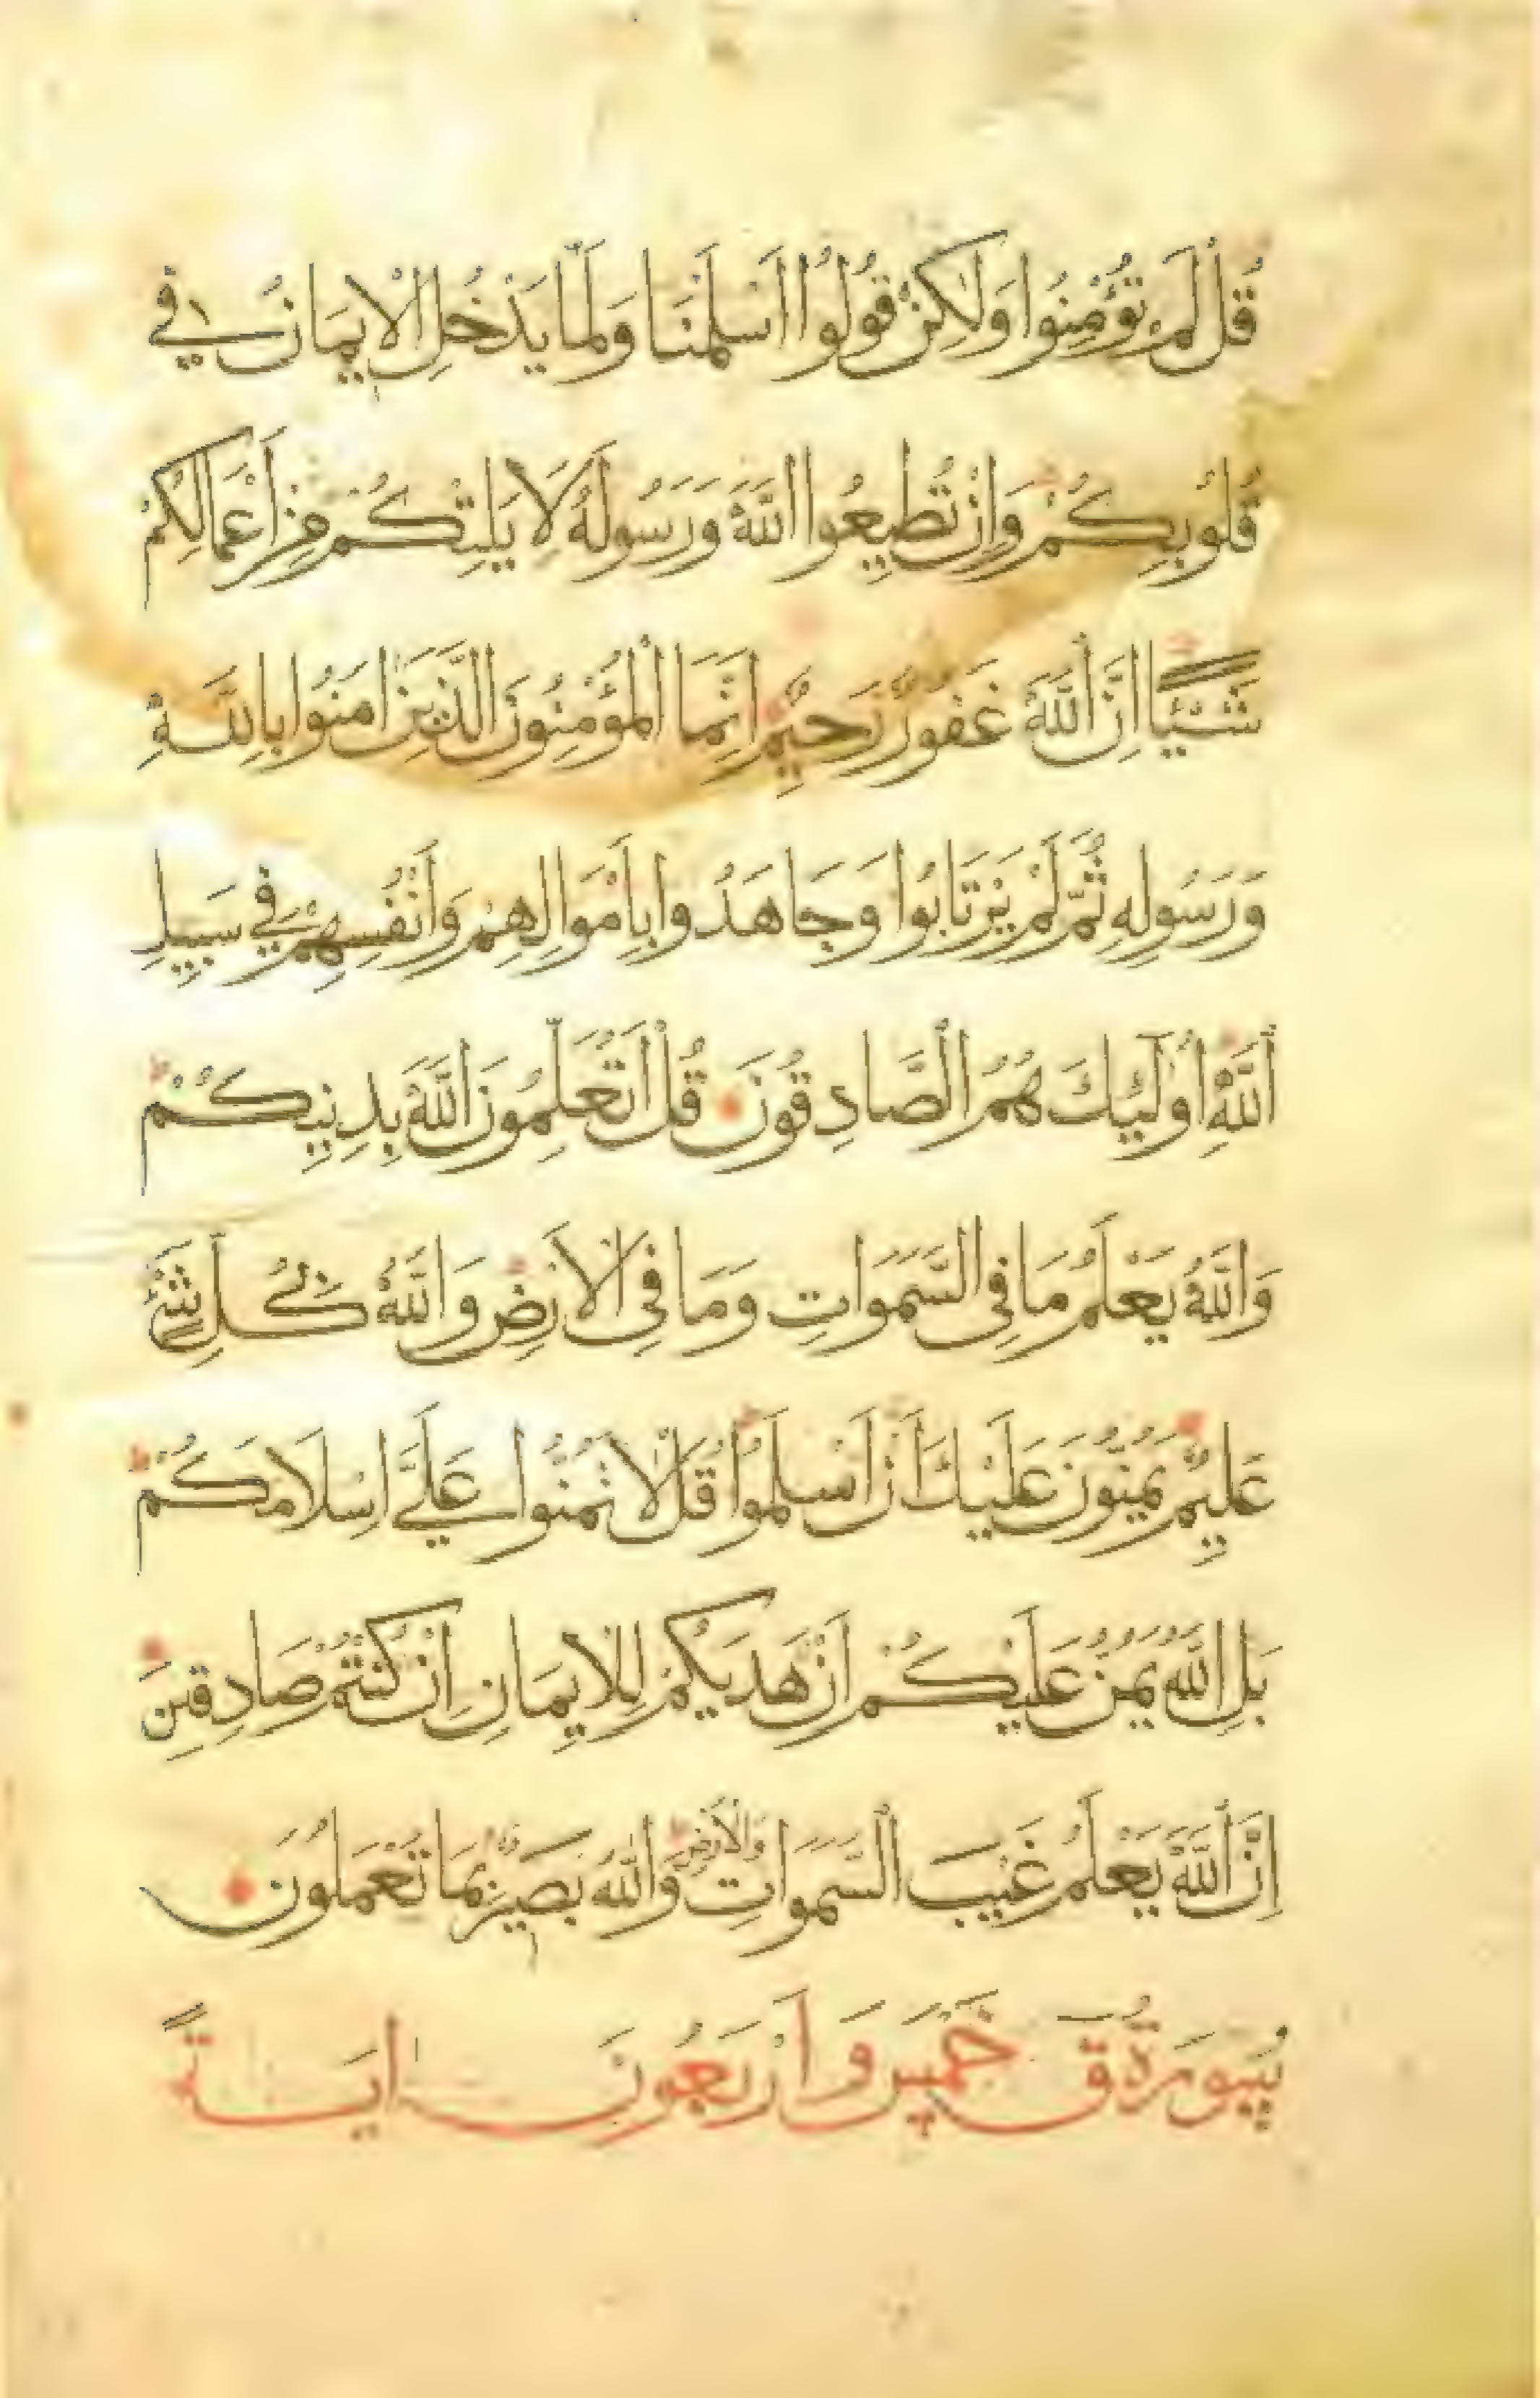 قُلْ لَمْ تُؤْمِنُوا وَلٰكِنْ قُولُوا اَسْلَمْنَا وَلَمَّا يَدْخُلِ الْاِيمَانُ فِي
قُلُوبِكُمْ وَاِنْ تُطِيعُوا اللّٰهَ وَرَسُولَهُ لَا يَلِتْكُمْ مِنْ اَعْمَالِكُمْ
شَيْـًٔا اِنَّ اللّٰهَ غَفُورٌ رَحِيمٌ اِنَّمَا الْمُؤْمِنُونَ الَّذِينَ اٰمَنُوا بِاللّٰهِ
وَرَسُولِهِ ثُمَّ لَمْ يَرْتَابُوا وَجَاهَدُوا بِاَمْوَالِهِمْ وَاَنْفُسِهِمْ فِي سَبِيلِ
اللّٰهِ اُولٰٓئِكَ هُمُ الصَّادِقُونَ قُلْ اَتُعَلِّمُونَ اللّٰهَ بِدِينِكُمْ
وَاللّٰهُ يَعْلَمُ مَا فِي السَّمٰوَاتِ وَمَا فِي الْاَرْضِ وَاللّٰهُ بِكُلِّ شَيْءٍ
عَلِيمٌ يَمُنُّونَ عَلَيْكَ اَنْ اَسْلَمُوا قُلْ لَا تَمُنُّوا عَلَيَّ اِسْلَامَكُمْ
بَلِ اللّٰهُ يَمُنُّ عَلَيْكُمْ اَنْ هَدٰيكُمْ لِلْاِيمَانِ اِنْ كُنْتُمْ صَادِقِينَ
اِنَّ اللّٰهَ يَعْلَمُ غَيْبَ السَّمٰوَاتِ وَالْاَرْضِ وَاللّٰهُ بَصِيرٌ بِمَا تَعْمَلُونَ
سُورَةُ ق خَمْسٌ وَاَرْبَعُونَ اٰيَةً